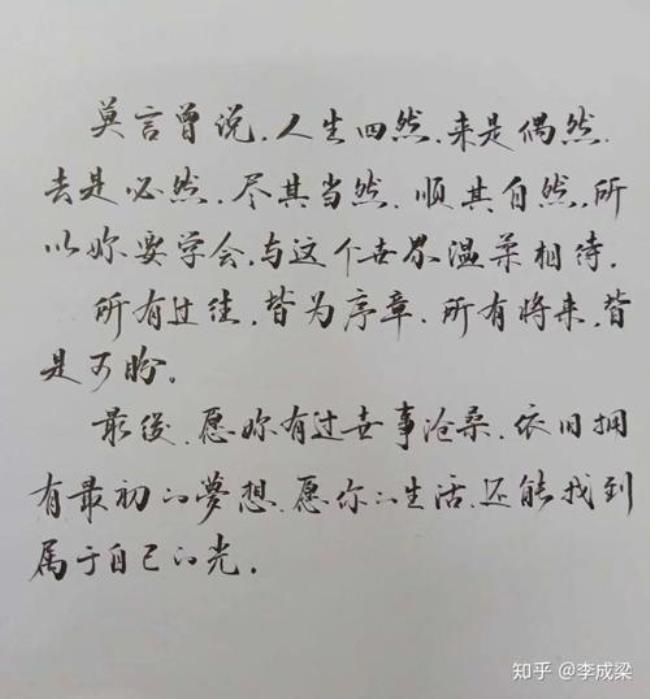 莫言曾说.人生四然.来是偶然.
去是必然.尽其当然.顺其自然.所
以妳要学会.与这个世界温柔相待.
所有过往.皆为序章.所有将来.皆
是可盼。
最後.愿妳有过世事沧桑.依旧拥
有最初的夢想.愿你的生活.还能找到
属于自己的光.
知乎 @李成梁